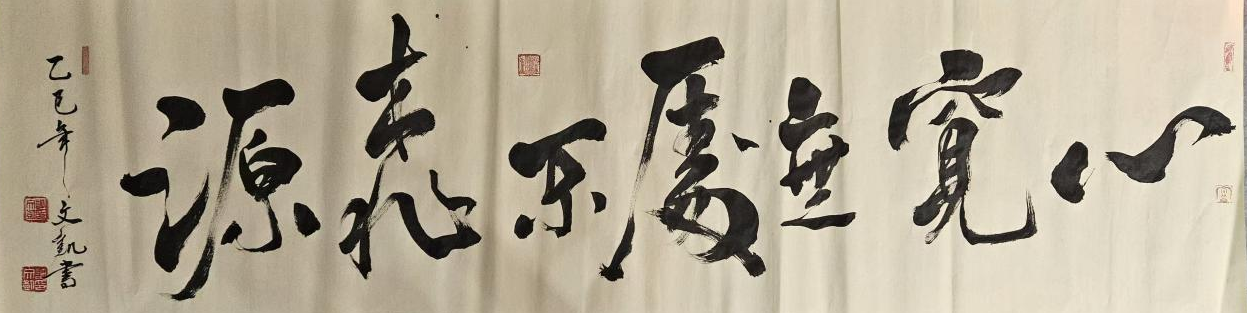 心寬無處不桃源
乙巳年 文凱書